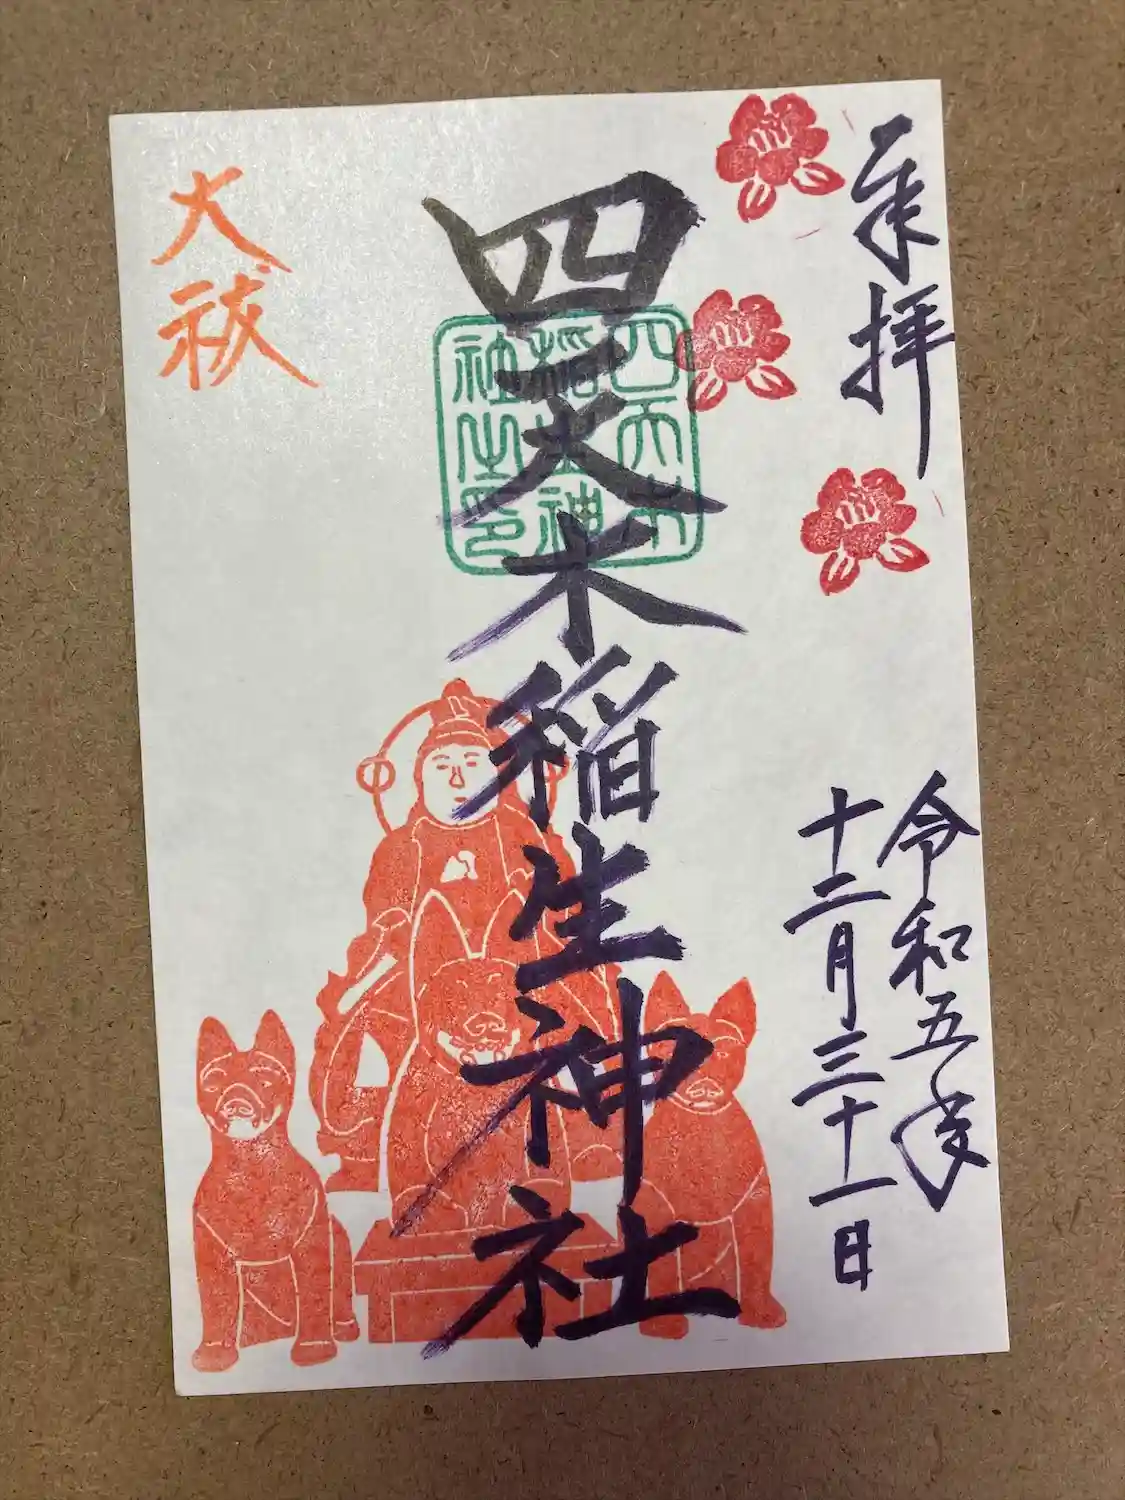 奉拝
令和五年
十二月三十一日
四天木稲生神社
四天木
稲生神
社之印
大祓